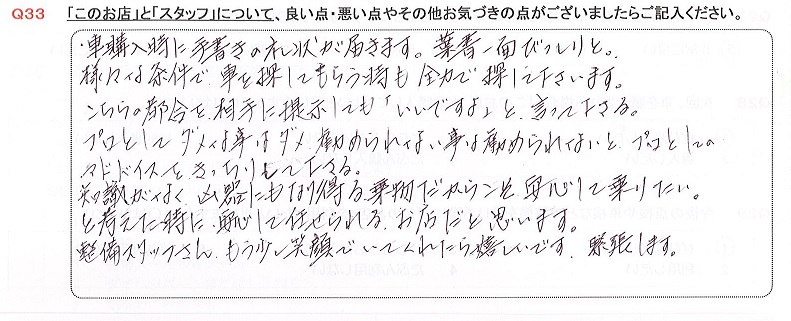 Q33 「このお店」と「スタッフ」について、良い点・悪い点やその他お気づきの点がございましたらご記入ください。
・車購入時に手書きの礼状が届きます。葉書一面びっしりと。
様々な条件で車を探してもらう時も全力で探して下さいます。
こちらの都合を相手に提示しても「いいですよ」と言って下さる。
プロとしてダメな事はダメ、勧められない事は勧められないと、プロとしての
アドバイスをきっちりもして下さる。
知識がなく、凶器にもなり得る乗物だからこそ安心して乗りたい。
と考えた時に、安心して任せられるお店だと思います。
整備スタッフさん、もう少し笑顔でいてくれたら嬉しいです。緊張します。